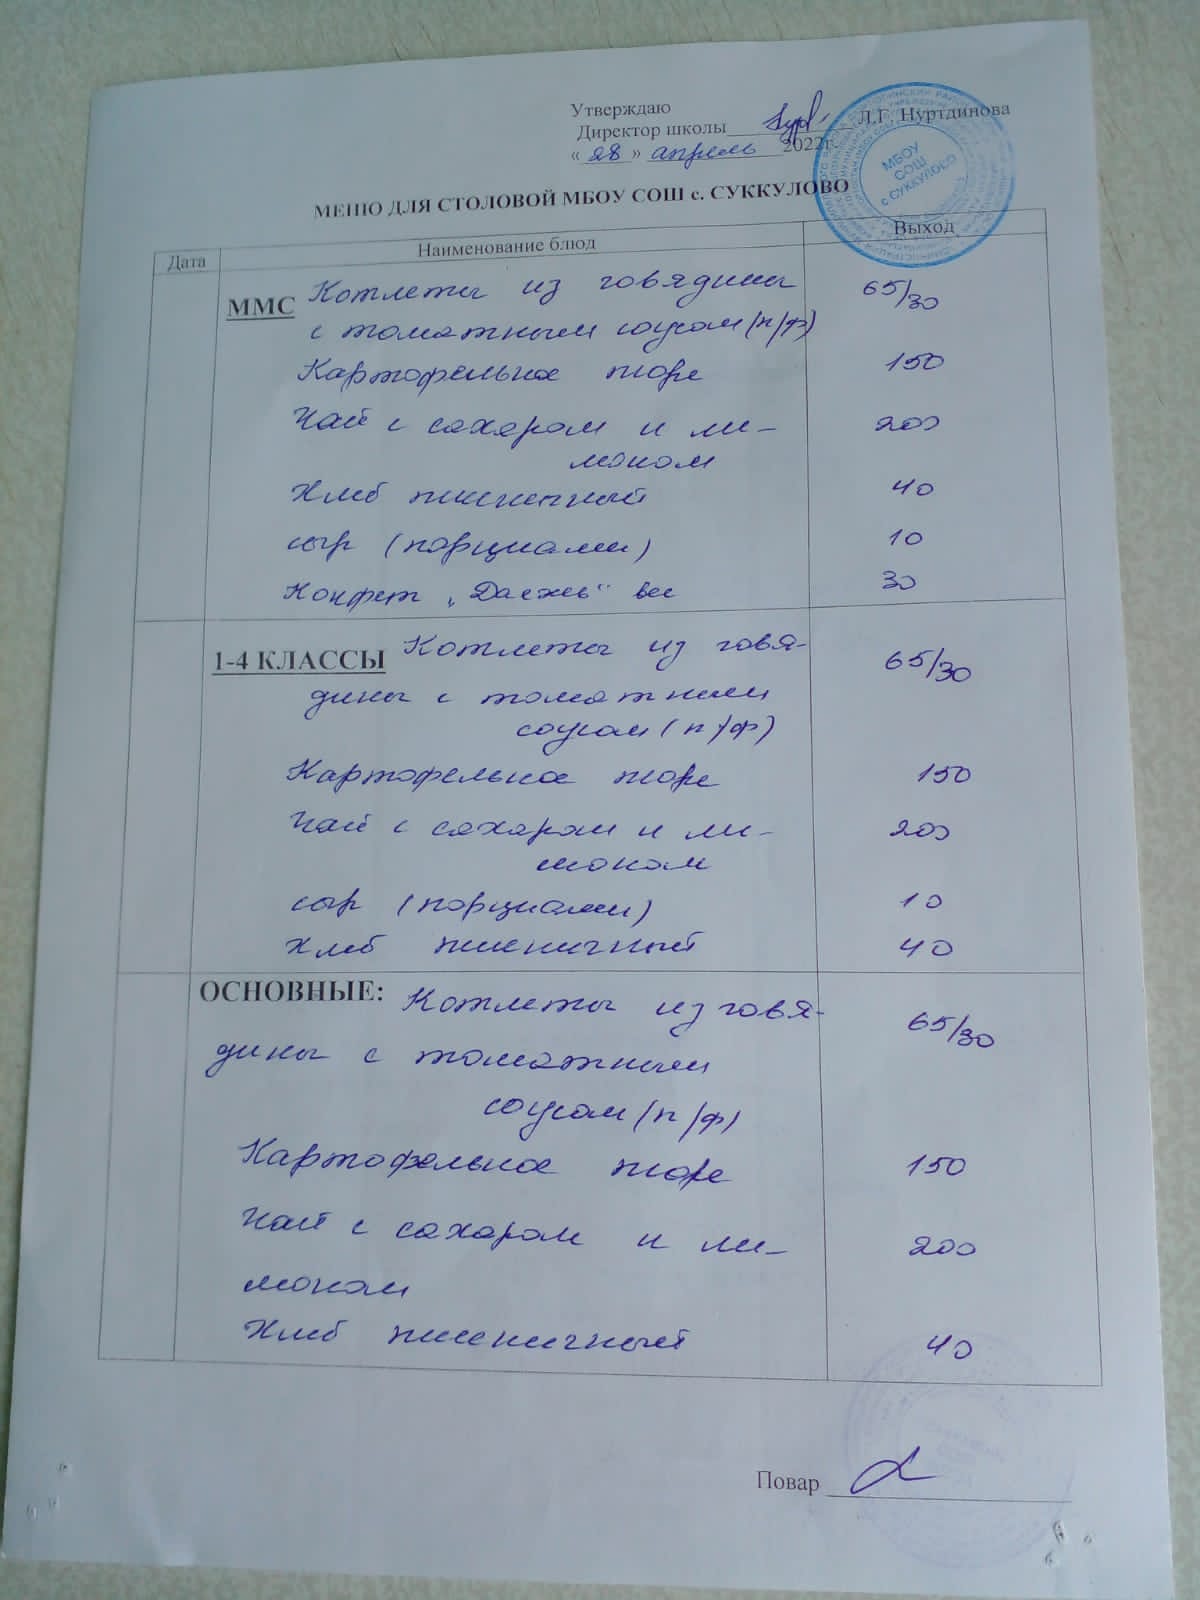 Утверждаю
Директор школы Л.Г. Нуртдинова
« 28 » апрель 2022г.
МБОУ
СОШ
с СУККУЛОВО
МЕНЮ ДЛЯ СТОЛОВОЙ МБОУ СОШ с. СУККУЛОВО
Дата Наименование блюд Выход
ММС Котлеты из говядины 65/30
с томатным соусом (п/ф)
Картофельное пюре 150
Чай с сахаром и ли-
моном 200
Хлеб пшеничный 40
сыр (порциями) 10
Конфет вес 30
1-4 КЛАССЫ Котлеты из говя- 65/30
дины с томатным
соусом (п/ф)
Картофельное пюре 150
Чай с сахаром и ли- 200
моном
сыр (порциями) 10
Хлеб пшеничный 40
ОСНОВНЫЕ: Котлеты из говя- 65/30
дины с томатным
соусом (п/ф)
Картофельное пюре 150
Чай с сахаром и ли- 200
моном
Хлеб пшеничный 40
Повар